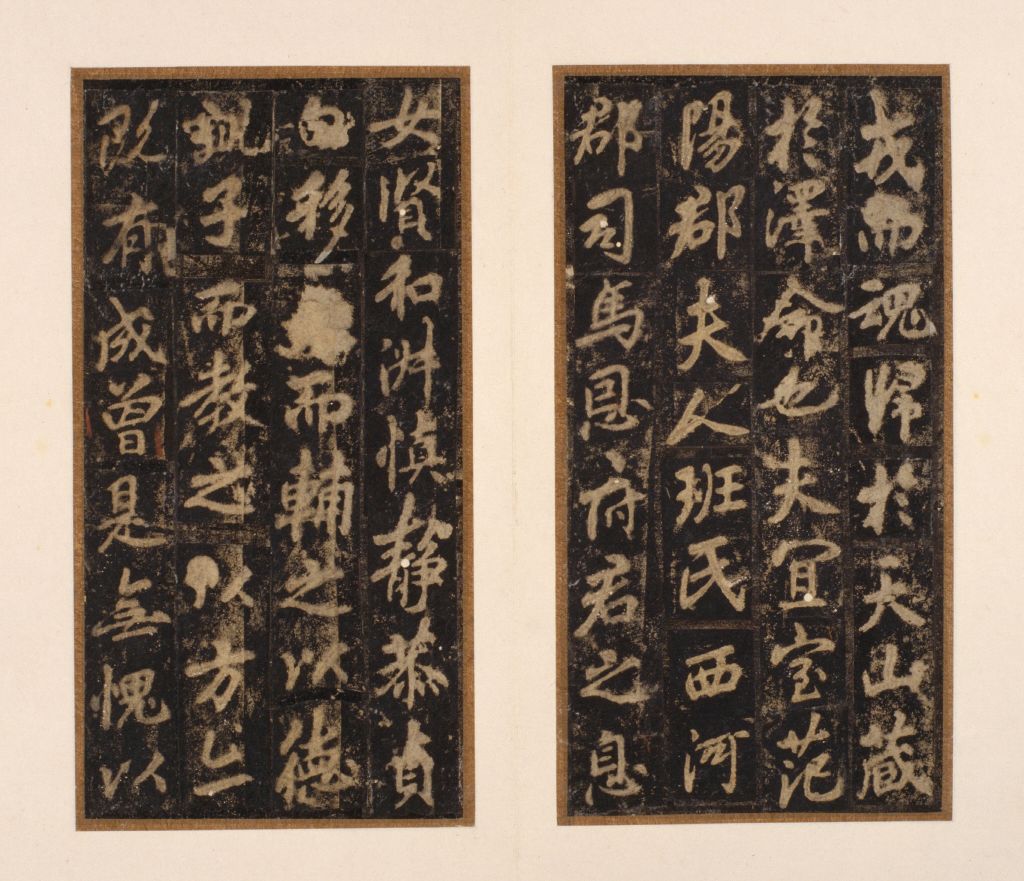 戎而魂歸於天山藏
於澤命也夫宜室范
陽郡夫人班氏西河
郡司馬恩府君之息
女賢和淑慎靜恭貞
白移而輔之以德
子而教之以方亡
既有成曾是無愧以